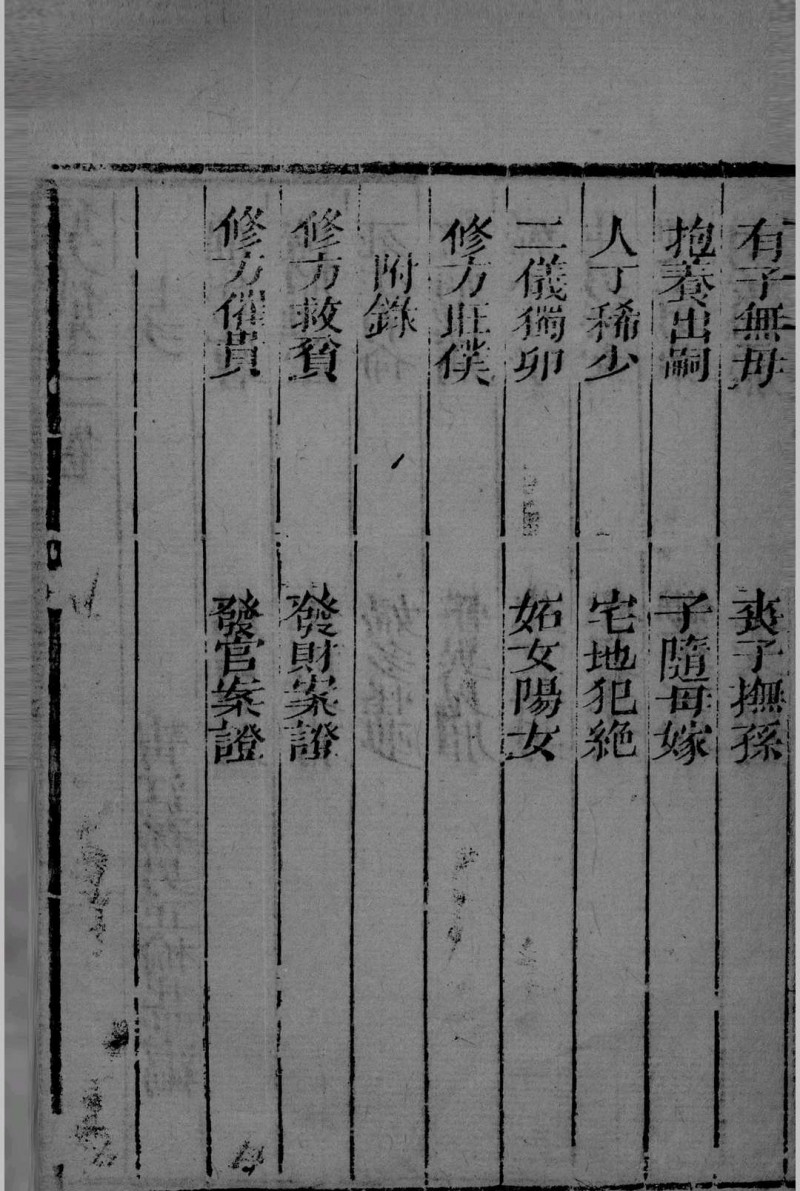 有子無母　喪子撫孫
抱養出嗣　子隨母嫁
人丁稀少　宅地犯絶
二儀獨卵　妬女陽女
修方旺僕
附錄
修方救貧　發財案證
修方催貴　發官案證